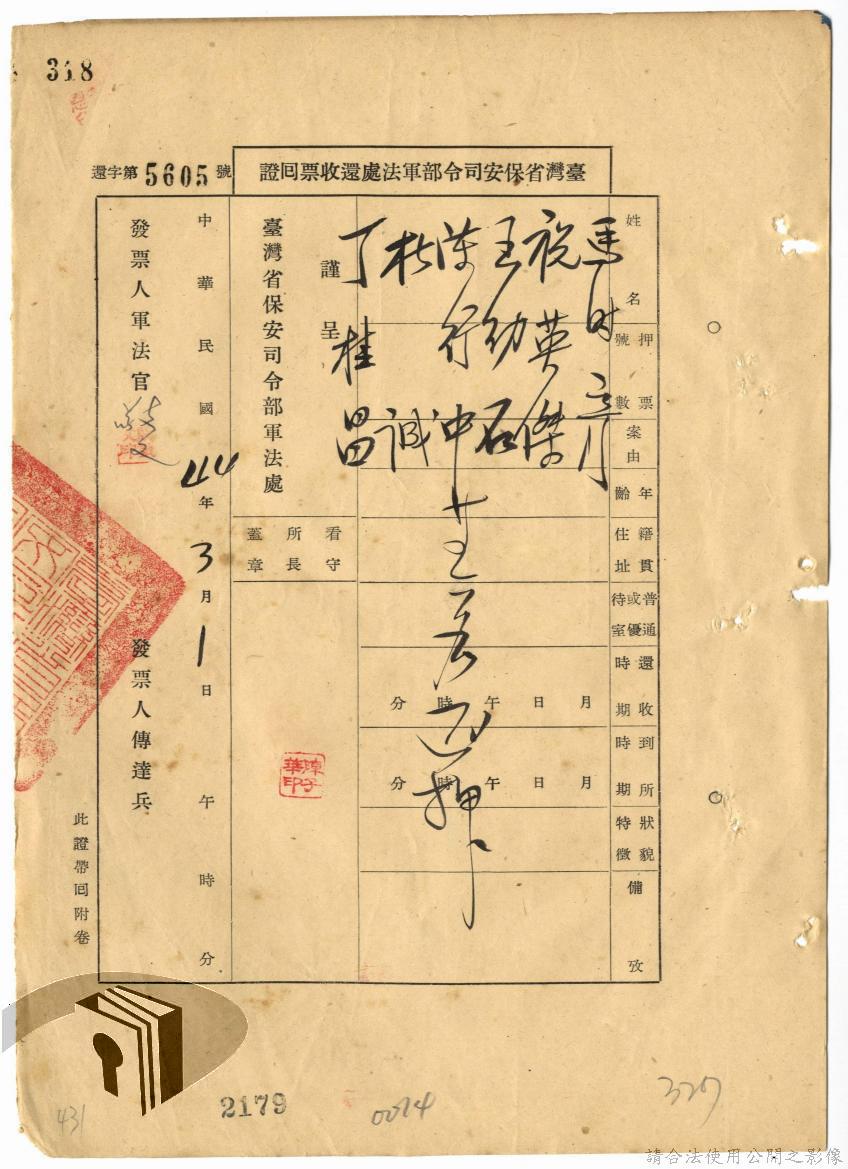 318
臺灣省保安司令部軍法處還收票回證
還字第5605號
姓名
押票號數
案由
年齡
籍貫住址
普通或優待室
還收時期
月 日 午 時 分
到所時期
月 日 午 時 分
狀貌特徵
備攷
馬时彥
祝英傑
王幼石
陳行中
杜誠
丁桂昌
還押
謹呈
臺灣省保安司令部軍法處
看守所長蓋章
陳子華印
中華民國44年3月1日 午 時 分
發票人軍法官
發票人傳達兵
此證帶回附卷
2179
0074
327
431
請合法使用公開之影像